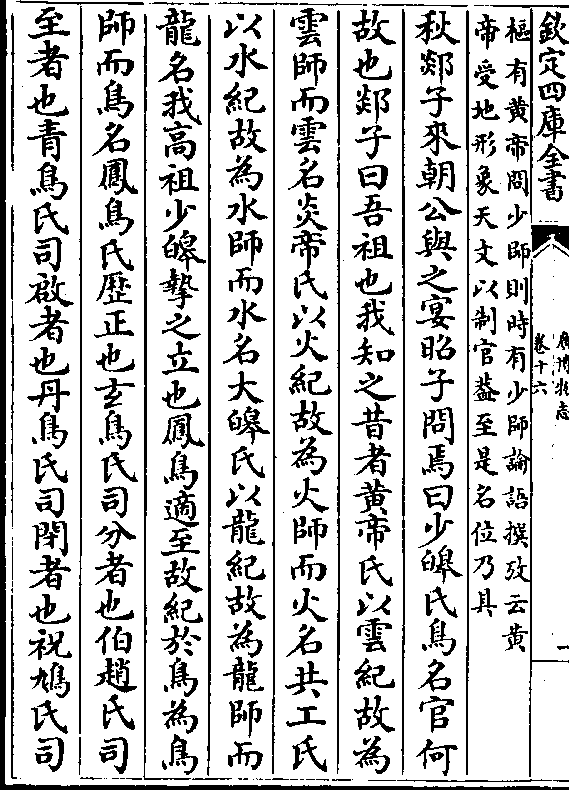 欽定四庫全書
廣博物志
卷十六
一
樞有黄帝問少師則時有少師論語撰攷云黄
帝受地形象天文以制官葢至是名位乃具
秋郯子來朝公與之宴昭子問焉曰少皥氏鳥名官何
故也郯子曰吾祖也我知之昔者黄帝氏以雲紀故為
雲師而雲名炎帝氏以火紀故為火師而火名共工氏
以水紀故為水師而水名大皥氏以龍紀故為龍師而
龍名我高祖少皥摯之立也鳳鳥適至故紀於鳥為鳥
師而鳥名鳳鳥氏厯正也玄鳥氏司分者也伯趙氏司
至者也青鳥氏司啟者也丹鳥氏司閉者也祝鳩氏司